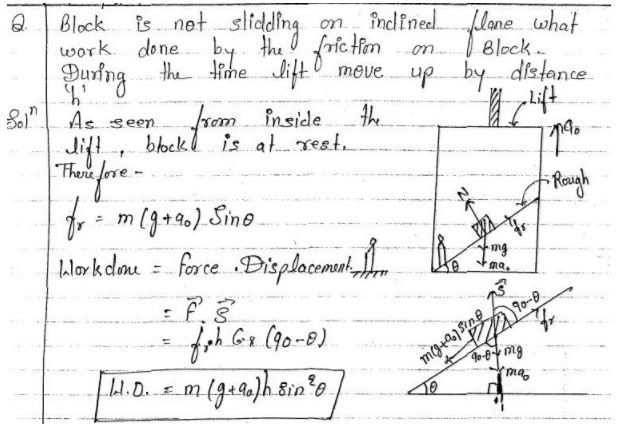 Q Block is not slidding on inclined plane what
work done by the friction on Block.
During the time lift move up by distance
'h'
Solⁿ As seen from inside the
lift, block is at rest.
Therefore -
fr = m(g+a₀) Sinθ
Workdone = force . Displacement
= F⃗ . S⃗
= fr h Cos (90-θ)
W.D. = m(g+a₀)h Sin²θ
Lift
a₀
Rough
N
fr
mg
ma₀
θ
S⃗
90-θ
fr
m(g+a₀)sinθ
90-θ
mg
ma₀
θ